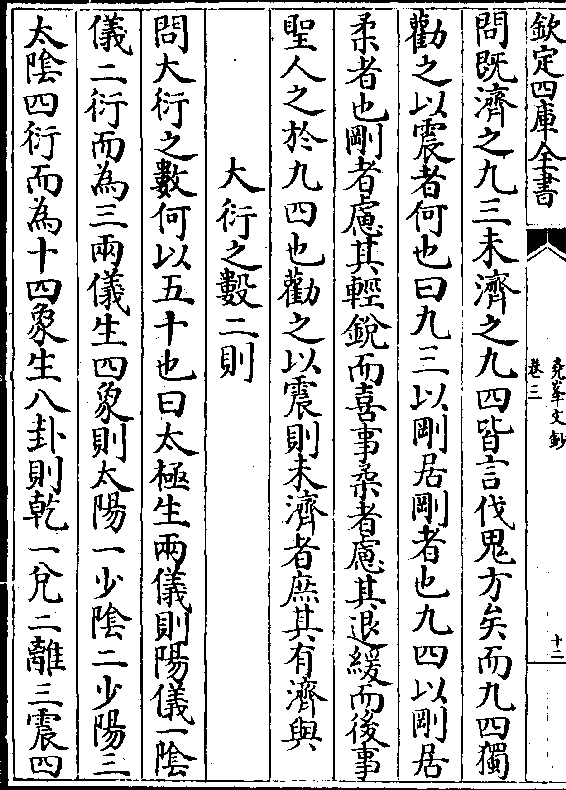 欽定四庫全書
堯峯文鈔
卷三
十二
問既濟之九三未濟之九四皆言伐鬼方矣而九四獨
勸之以震者何也曰九三以剛居剛者也九四以剛居
柔者也剛者慮其輕銳而喜事柔者慮其退緩而後事
聖人之於九四也勸之以震則未濟者庶其有濟與
大衍之數二則
問大衍之數何以五十也曰太極生兩儀則陽儀一陰
儀二衍而為三兩儀生四象則太陽一少陰二少陽三
太陰四衍而為十四象生八卦則乾一兌二離三震四